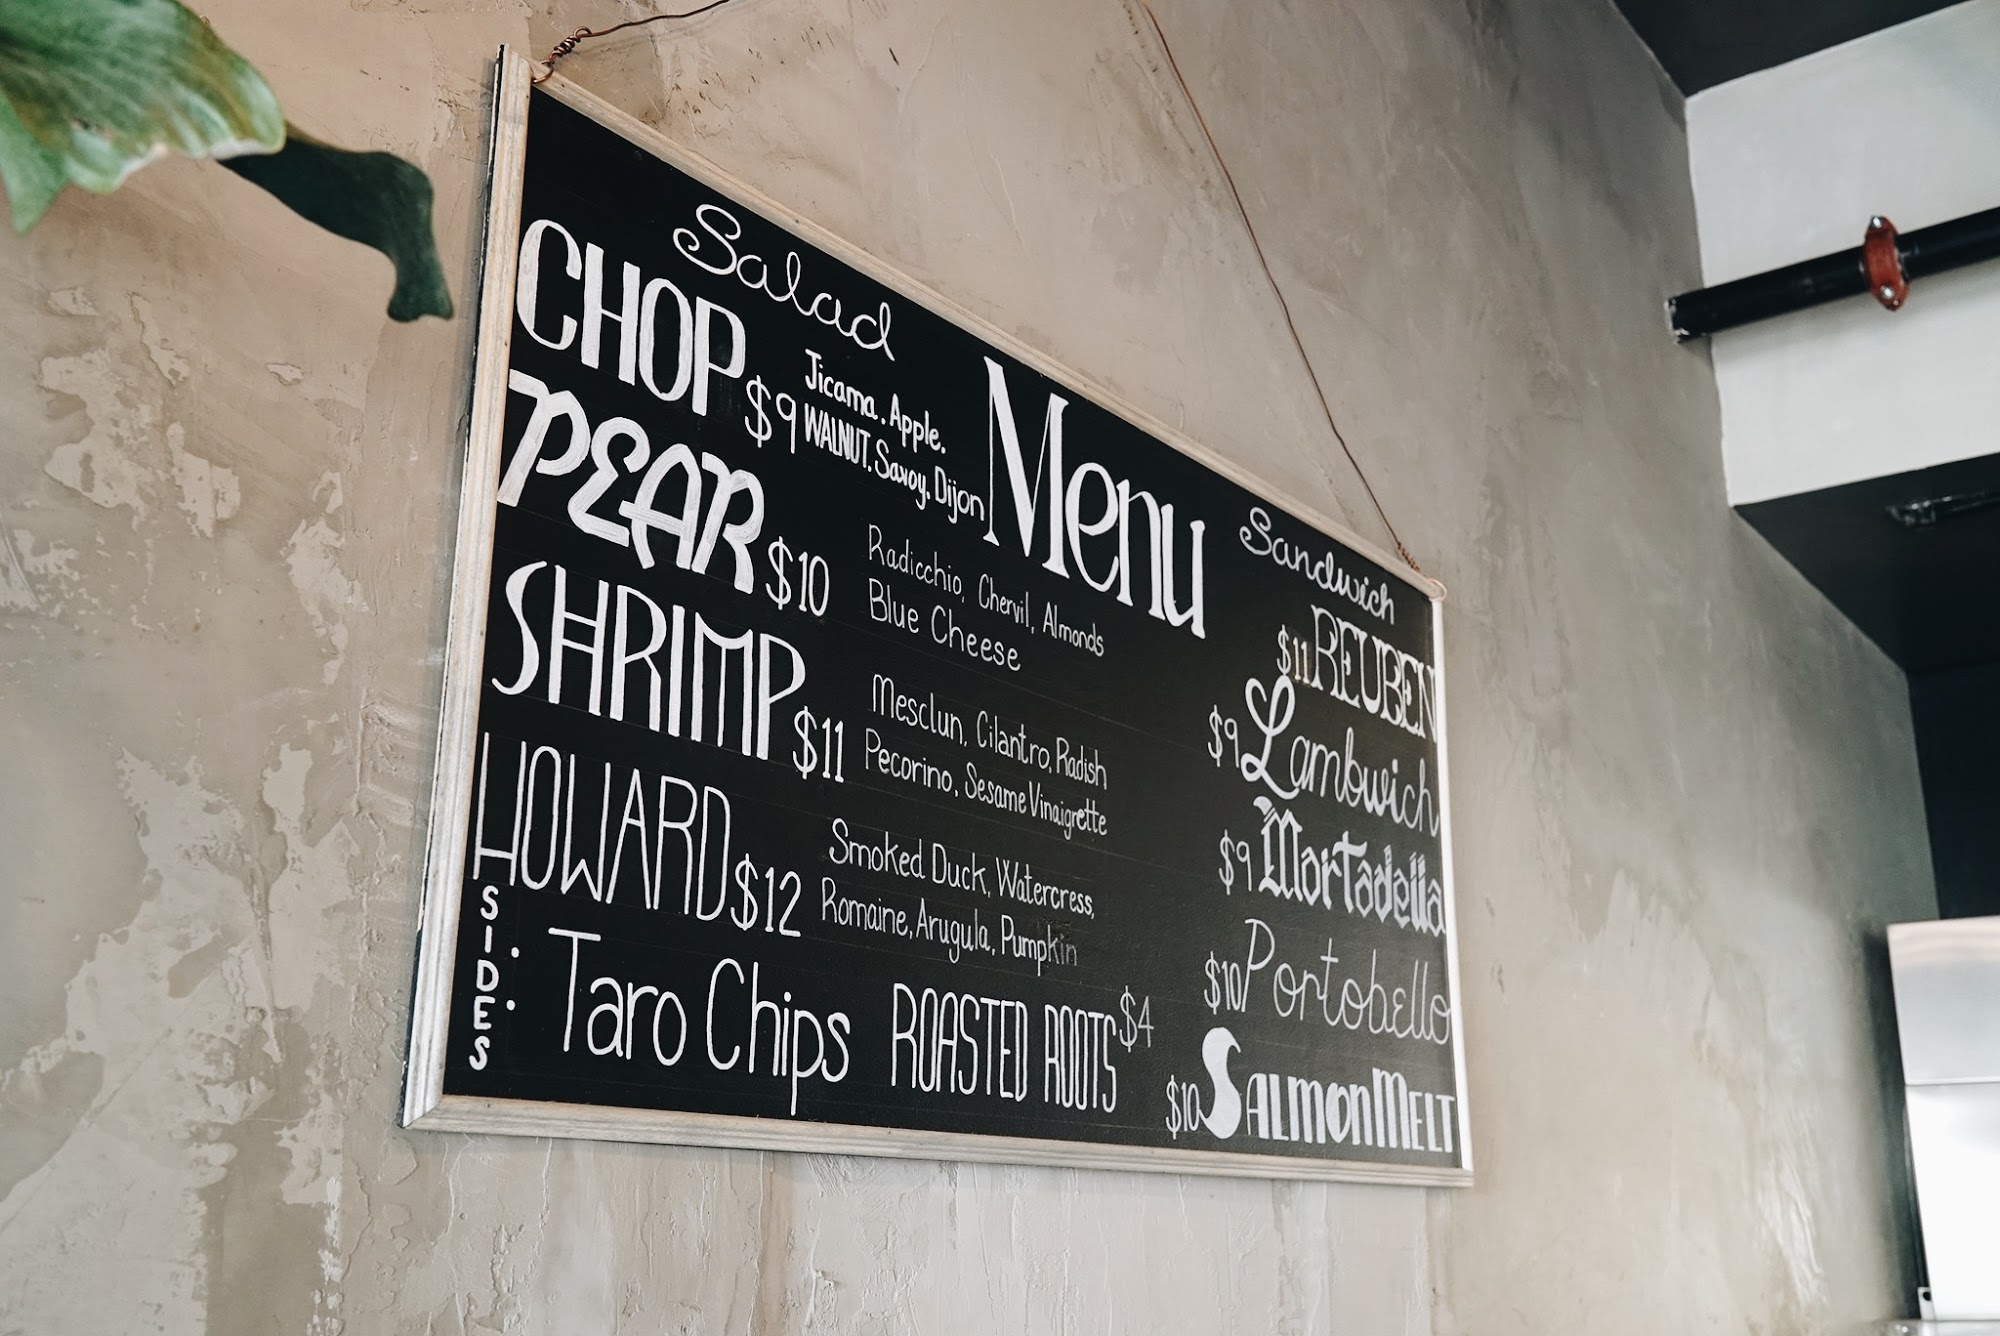 Menu
Salad
CHOP $9
Jicama. Apple.
WALNUT. Savoy. Dijon
PEAR $10
Radicchio, Chervil, Almonds
Blue Cheese
SHRIMP $11
Mesclun, Cilantro, Radish
Pecorino, Sesame Vinaigrette
HOWARD $12
Smoked Duck, Watercress,
Romaine, Arugula, Pumpkin
SIDES:
Taro Chips ROASTED ROOTS $4
Sandwich
$11 REUBEN
$9 Lambwich
$9 Mortadella
$10 Portobello
$10 SALMON MELT